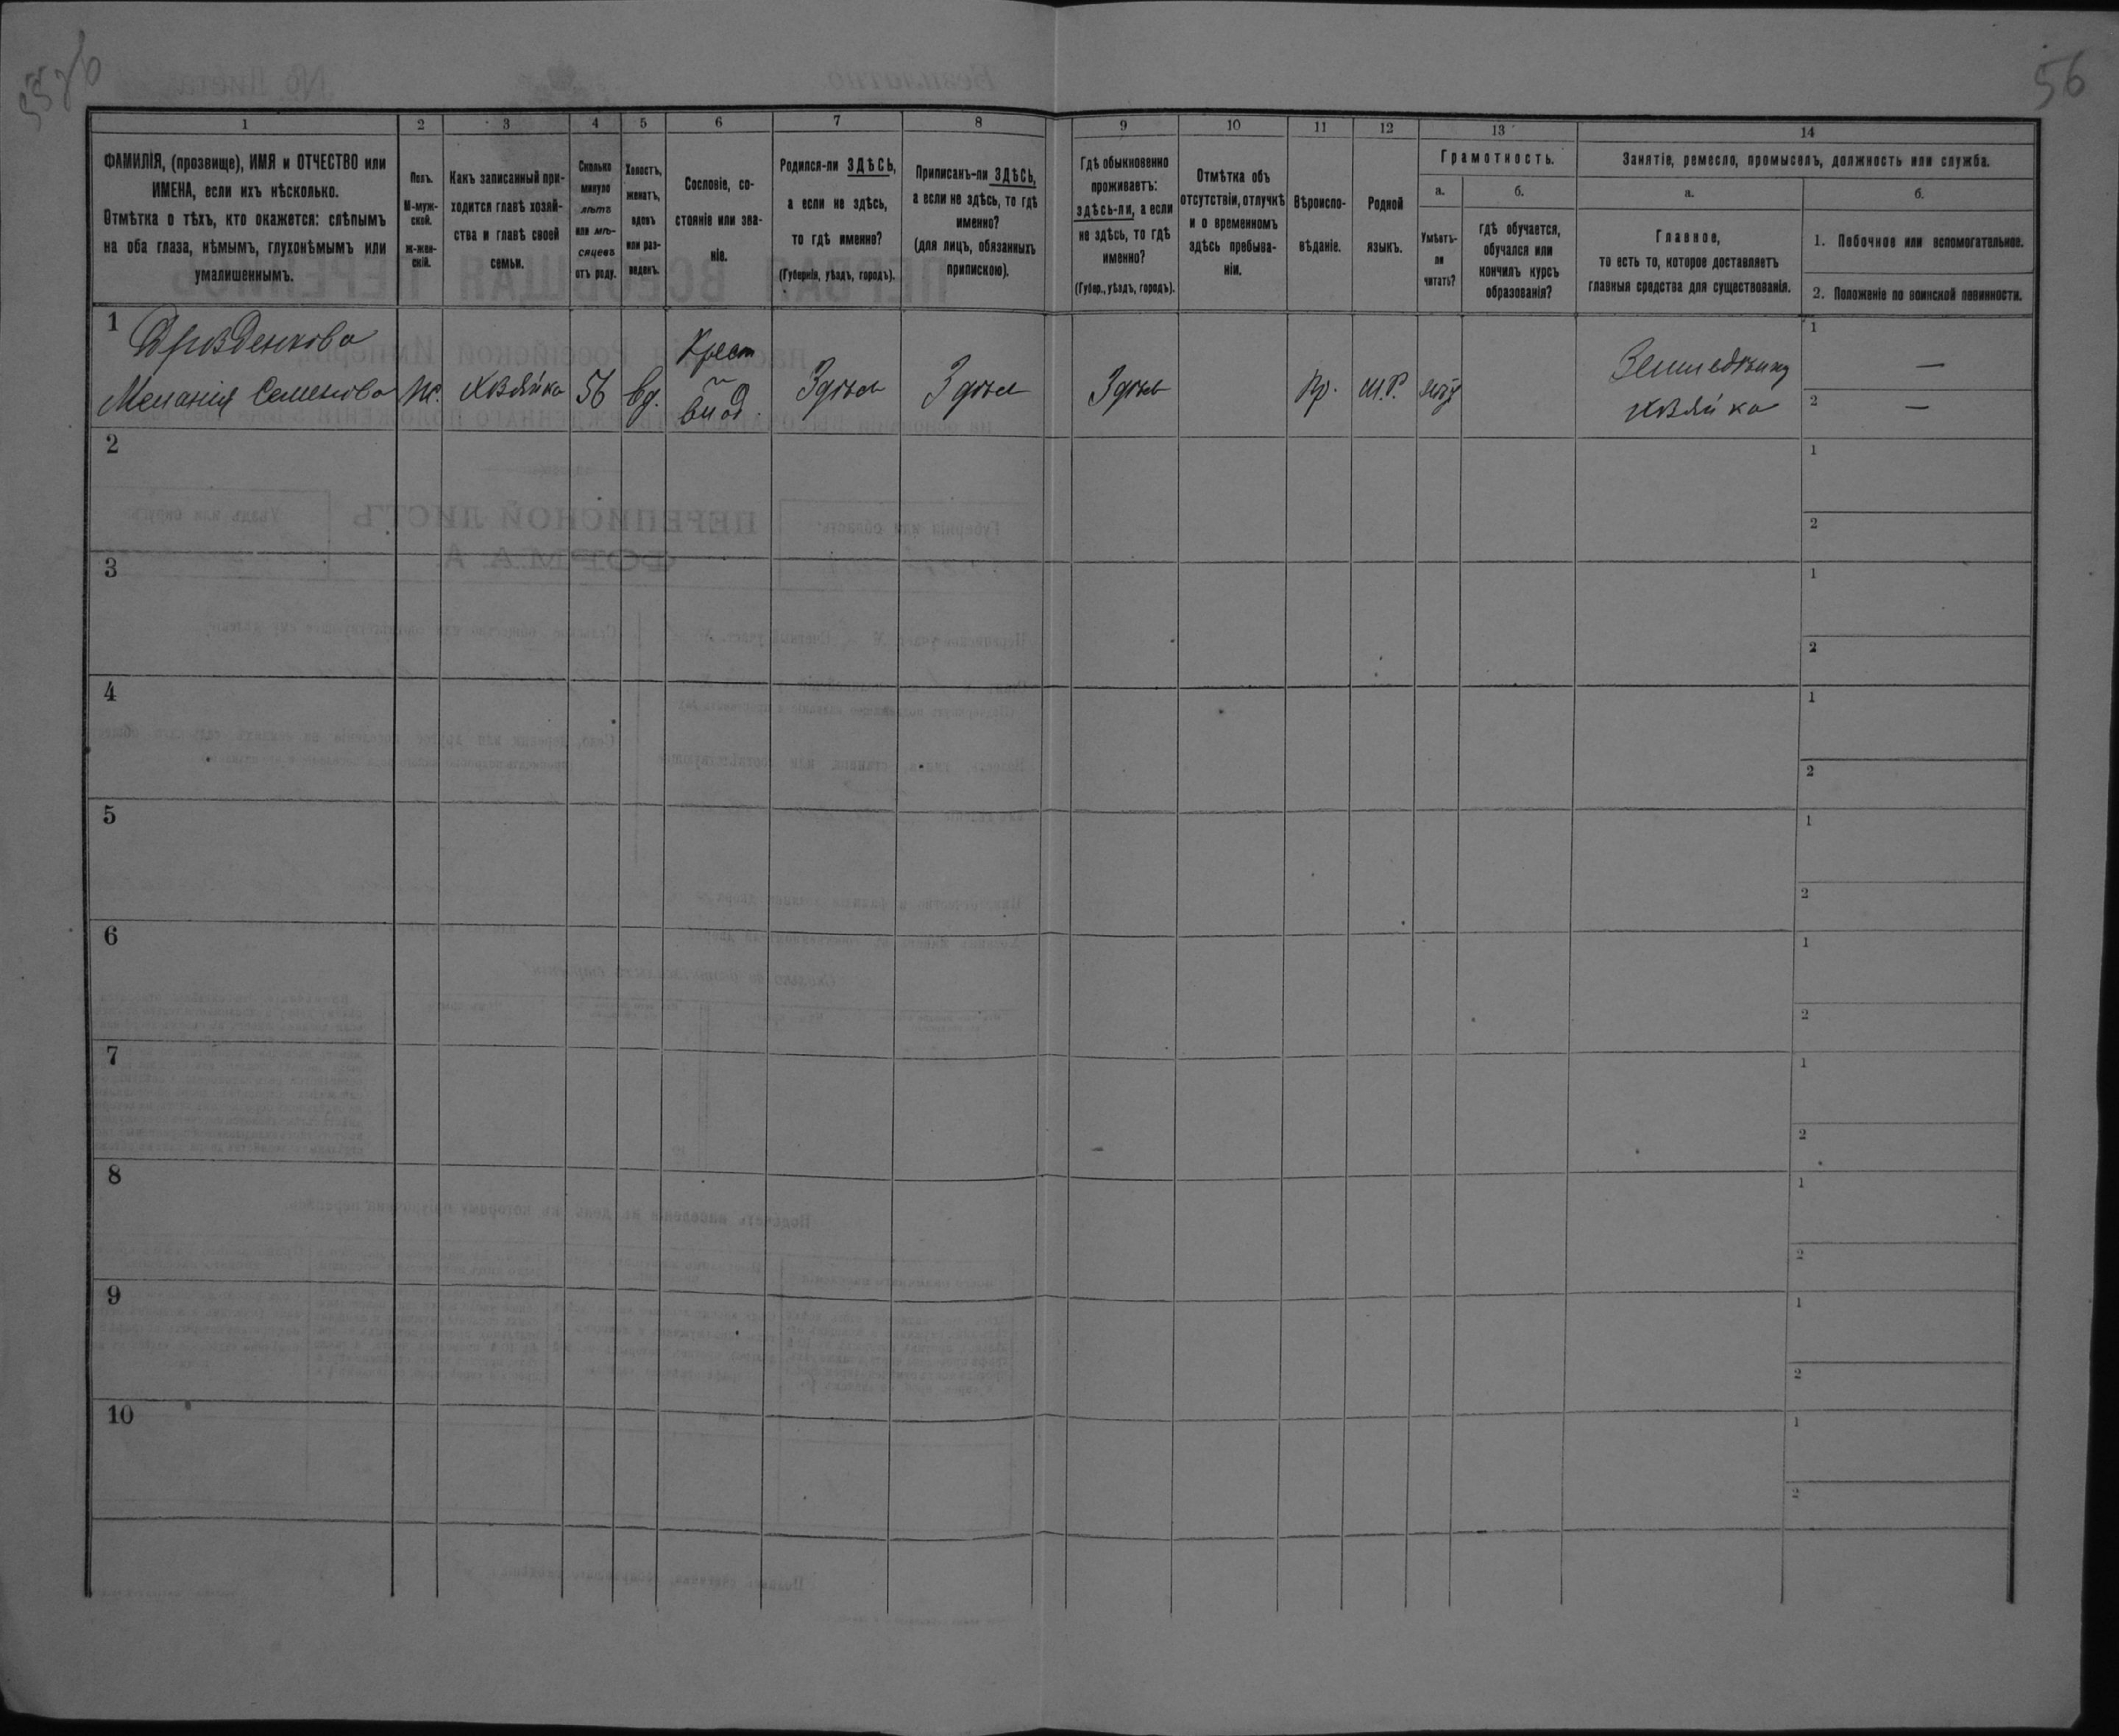 55 об
56
1
2
3
4
5
6
7
8
9
10
11
12
13
14
ФАМИЛІЯ, (прозвище), ИМЯ и ОТЧЕСТВО или
ИМЕНА, если ихъ нѣсколько.
Отмѣтка о тѣхъ, кто окажется: слѣпымъ
на оба глаза, нѣмымъ, глухонѣмымъ или
умалишеннымъ.
Полъ.
М-муж-
ской.
ж-жен-
скій.
Какъ записанный при-
ходится главѣ хозяй-
ства и главѣ своей
семьи.
Сколько
минуло
лѣтъ
или мѣ-
сяцевъ
отъ роду.
Холостъ,
женатъ,
вдовъ
или раз-
веденъ.
Сословіе, со-
стояніе или зва-
ніе.
Родился-ли ЗДѢСЬ,
а если не здѣсь,
то гдѣ именно?
(Губернія, уѣздъ, городъ).
Приписанъ-ли ЗДѢСЬ,
а если не здѣсь, то гдѣ
именно?
(для лицъ, обязанныхъ
припискою).
Гдѣ обыкновенно
проживаетъ:
здѣсь-ли, а если
не здѣсь, то гдѣ
именно?
(Губер., уѣздъ, городъ).
Отмѣтка объ
отсутствіи, отлучкѣ
и о временномъ
здѣсь пребыва-
ніи.
Вѣроиспо-
вѣданіе.
Родной
языкъ.
Грамотность.
а.
Умѣетъ-
ли
читать?
б.
гдѣ обучается,
обучался или
кончилъ курсъ
образованія?
Занятіе, ремесло, промыселъ, должность или служба.
а.
Главное,
то есть то, которое доставляетъ
главныя средства для существованія.
б.
1. Побочное или вспомогательное.
2. Положеніе по воинской повинности.
1
Дрозденкова
Меланія Семенова
Ж.
хозяйка
56
вд.
Крест
влад.
Здѣсь
Здѣсь
Здѣсь
Пр.
М.Р.
нѣт
хозяйка
1 —
2 —
2
1
2
3
1
2
4
1
2
5
1
2
6
1
2
7
1
2
8
1
2
9
1
2
10
1
2